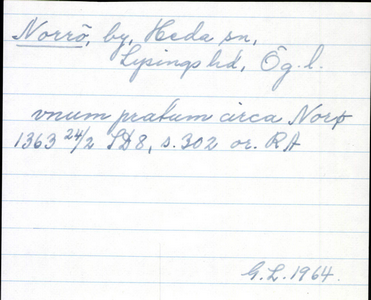 Norrö, by, Heda sn,
Lysings hd, Ög. l.
vnum pratum circa Norø
1363 24/2 SD8, s. 302 or. RA
G.L. 1964.